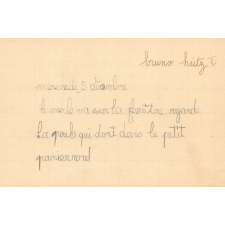 bruno heitz
mercredi 5 décembre
le merle va sur la fenêtre regarde
la poule qui dort dans le petit
panier rond